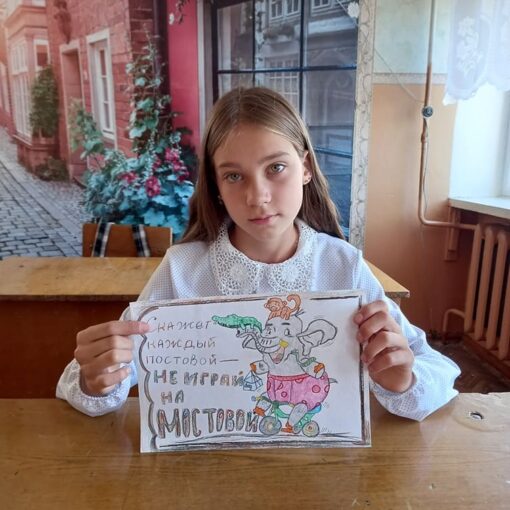 СКАЖЕТ
КАЖДЫЙ
ПОСТОВОЙ—
НЕ ИГРАЙ
НА
МОСТОВОЙ